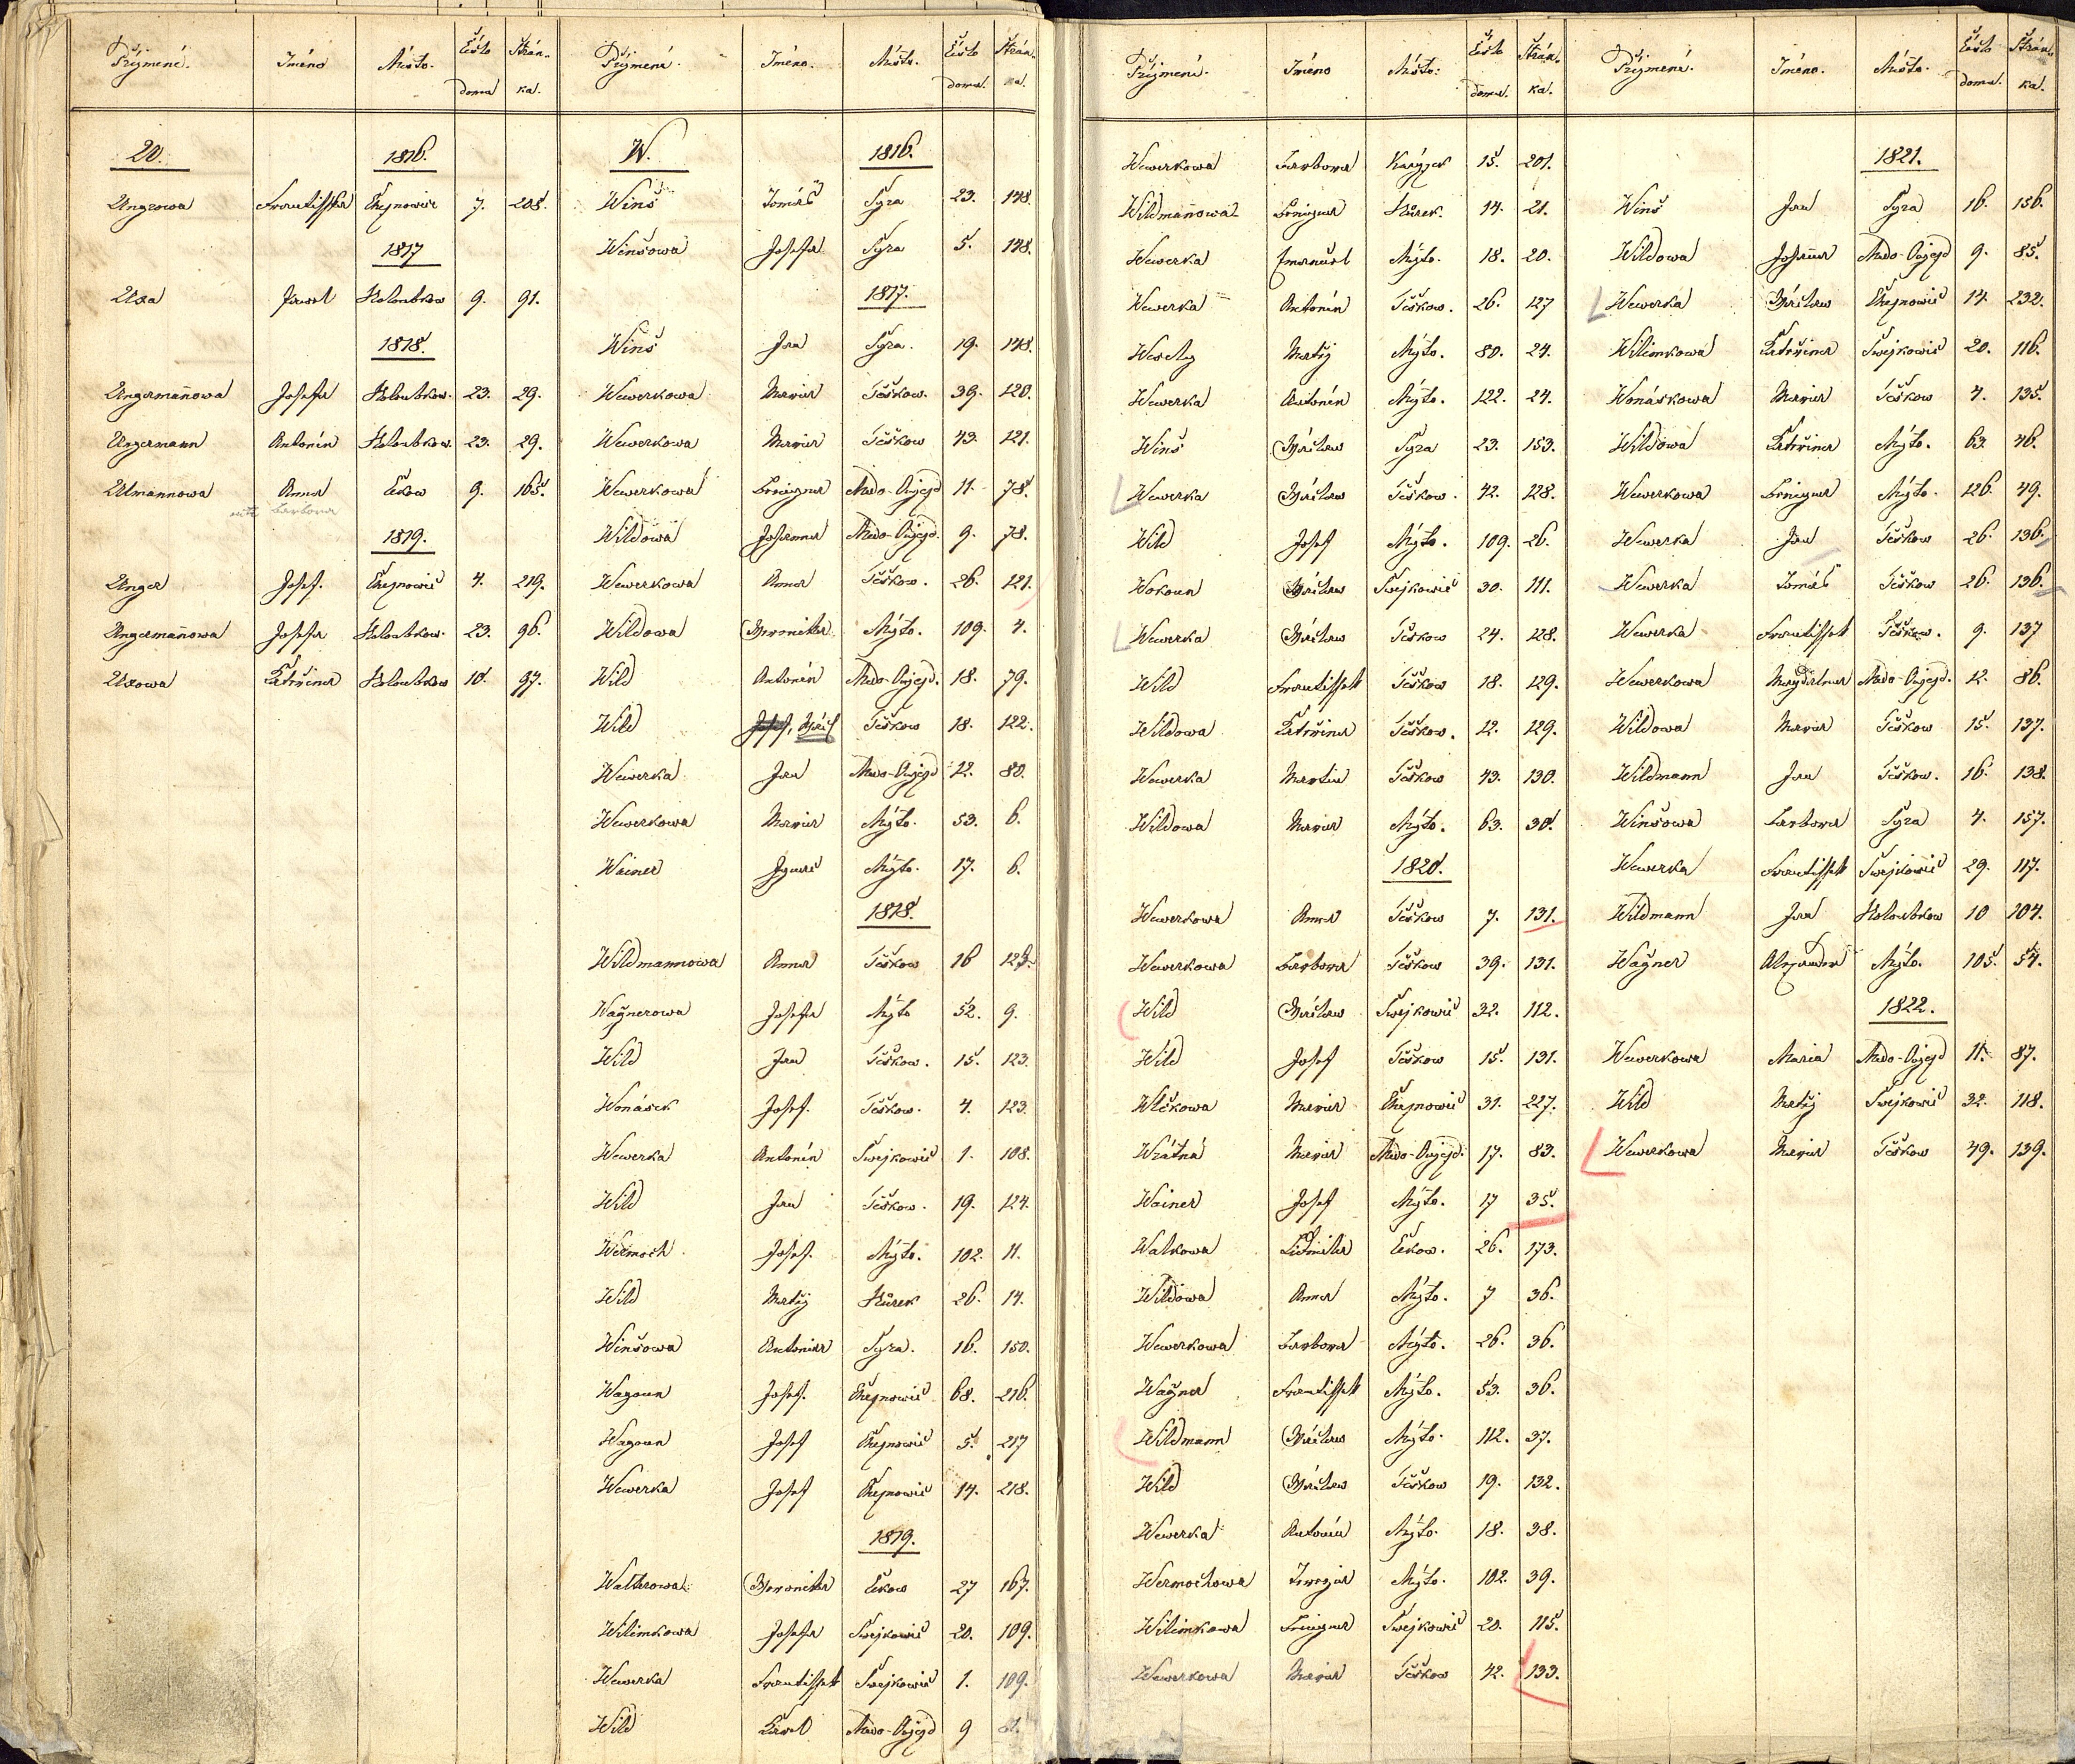 Přijmení. Jméno Místo. Čislo domu Strán- ka.
U. 1816.
Ungrowa Frantisska Chejnowic 7. 208.
1817
Uxa Jozef Holoubkow 9. 91.
1818.
Ungermañowa Josefa Holoubkow. 23. 29.
Ungermann Antonín Holoubkow. 23. 29.
Ulmannowa Anna Čekow 9. 165.
Barbora
1819.
Unger Josef. Chejnowic 4. 219.
Ungermañowa Josefa Holoubkow. 23. 96.
Uxowa Kateřina Holoubkow 10. 97.
Přijmení. Jméno. Místo. Čislo domu. Strán- ka.
W. 1816.
Winš Tomáš Syra 23. 148.
Winšowa Josefa Syra 5. 148.
1817.
Winš Jan Syra. 19. 148.
Wewerkowa Maria Těškow. 39. 120.
Wewerkowa Maria Těškow 43. 121.
Wewerkowa Frňzysca Medo-Oujezd 11. 78.
Wildowa Johanna Medo-Oujezd. 9. 78.
Wewerkowa Anna Těškow. 26. 121.
Wildowa Weronika Mýto. 109. 4.
Wild Antonín Medo-Oujezd. 18. 79.
Wild Josef, Těškow 18. 122.
Wewerka Jan Medo-Oujezd 12. 80.
Wewerkowa Maria Mýto. 53. 6.
Wainer Ignac Mýto. 17. 6.
1818.
Wildmannowa Anna Těškow 16
Wagnerowa Josefa Mýto 52. 9.
Wild Jan Těškow. 15. 123.
Wonásek Josef. Těškow. 4. 123.
Wewerka Antonín Swejkowic 1. 108.
Wild Jan Těškow. 19. 124.
Wermoch Josef. Mýto. 102. 11.
Wild Matěj Hůrek 26. 14.
Winšowa Antonia Syra. 16. 150.
Wagoun Josef. Chejnowic 68. 216.
Wagoun Josef Chejnowic 5. 217
Wewerka Josef Chejnowic 14. 218.
1819.
Walterowa Weronika Čekow 27 167.
Wilimkowa Josefa Swejkowic 20. 109.
Wewerka Frantissek Swejkowic 1. 109.
Wild Karel Medo-Oujezd 9 81.
Přijmení. Jméno Místo: Čislo domu. Strán- ka.
Wewerkowa Barbora Karýzek 15. 201.
Wildmañowa Hůrek. 14. 21.
Wewerka Emanuel Mýto. 18. 20.
Wewerka Antonín Těškow. 26. 127
Wesely Matěj Mýto. 80. 24.
Wewerka Antonín Mýto. 122. 24.
Winš Wáclaw Syra 23. 153.
Wewerka Wáclaw Těškow. 42. 128.
Wild Josef Mýto. 109. 26.
Wokoun Wáclaw Swejkowic 30. 111.
Wewerka Wáclaw Těškow 24. 128.
Wild Frantissek Těškow 18. 129.
Wildowa Kateřina Těškow. 12. 129.
Wewerka Martin Těškow 43. 130.
Wildowa Maria Mýto. 63. 30.
1820.
Wewerkowa Anna Těškow 7. 131.
Wewerkowa Barbora Těškow 39. 131.
Wild Wáclaw Swejkowic 32. 112.
Wild Josef Těškow 15. 131.
Wlčkowa Maria Chejnowic 31. 227.
Wrátná Maria Medo-Oujezd. 17. 83.
Wainer Josef Mýto. 17 35.
Walkowa Lidmila Čekow. 26. 173.
Wildowa Anna Mýto. 7 36.
Wewerkowa Barbora Mýto. 26. 36.
Wagner Frantissek Mýto. 53. 36.
Wildmann Wáclaw Mýto. 112. 37.
Wild Wáclaw Těškow 19. 132.
Wewerka Antonín Mýto. 18. 38.
Wermochowa Terezia Mýto. 102. 39.
Wilimkowa Swejkowic 20. 115.
Wewerkowa Maria Těškow 42. 133.
Přijmení. Jméno. Místo. Čislo domu. Strán- ka.
1821.
Winš Jan Syra 16. 156.
Wildowa Johana Medo-Oujezd 9. 85.
Wewerka Wáclaw Chejnowic 14. 232.
Wilimkowa Kateřina Swejkowic 20. 116.
Wonáskowa Maria Těškow 4. 135.
Wildowa Kateřina Mýto. 63. 46.
Wewerkowa Mýto. 126. 49.
Wewerka Jan Těškow 26. 136.
Wewerka Tomáš Těškow 26. 136.
Wewerka Frantissek Těškow. 9. 137
Wewerkowa Magdalena Medo-Oujezd. 12. 86.
Wildowa Maria Těškow 15. 137.
Wildmann Jan Těškow. 16. 138.
Winšowa Barbora Syra 4. 157.
Wewerka Frantissek Swejkowic 29. 117.
Wildmann Jan Holoubkow 10 104.
Wagner Alexander Mýto. 105. 54.
1822.
Wewerkowa Maria Medo-Oujezd 11. 87.
Wild Matěj Swejkowic 32. 118.
Wewerkowa Maria Těškow 49. 139.